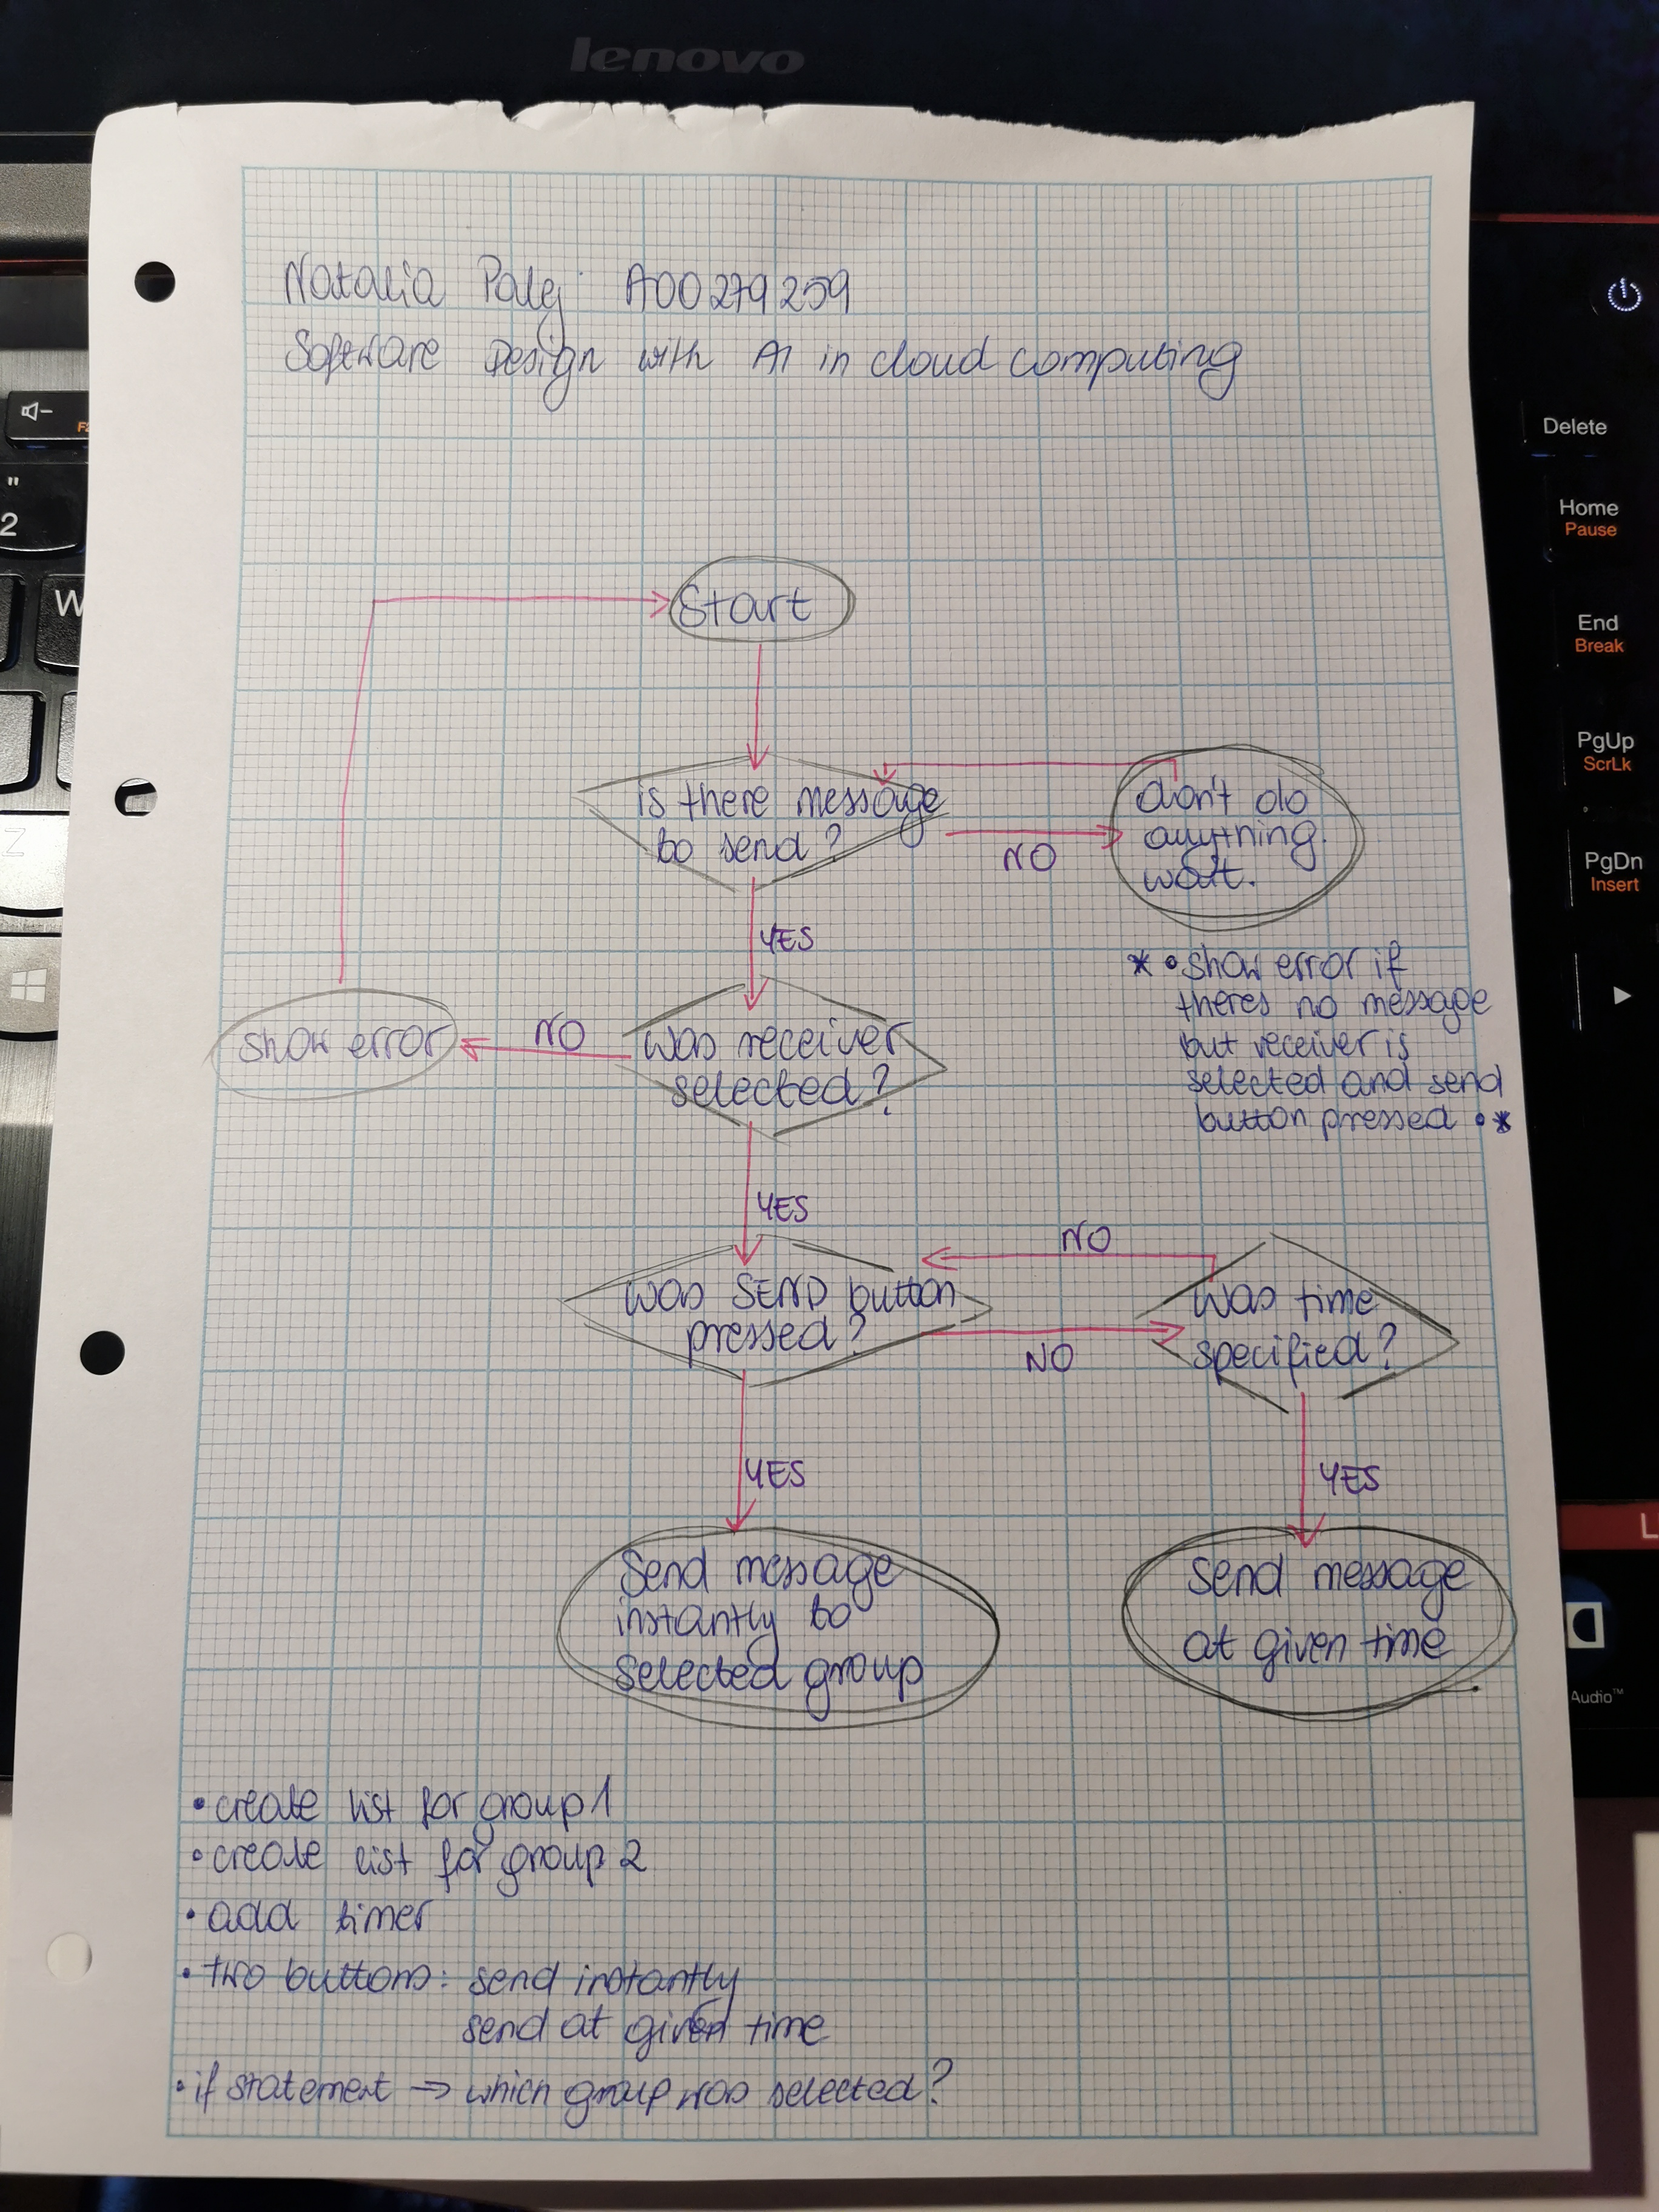 lenovo
Natalia Palej A00279259
Software Design with AI in cloud computing
Start
is there message
to send?
NO
don't do
anything.
wait.
YES
* • show error if
theres no message
but receiver is
selected and send
button pressed • *
show error
NO
was receiver
selected?
YES
NO
was SEND button
pressed?
NO
was time
specified?
YES
YES
Send message
instantly to
selected group
Send message
at given time
• create list for group 1
• create list for group 2
• add timer
• two buttons: send instantly
send at given time
• if statement → which group was selected?
Delete
Home
Pause
End
Break
PgUp
ScrLk
PgDn
Insert
"
2
W
Z
Audio™
L